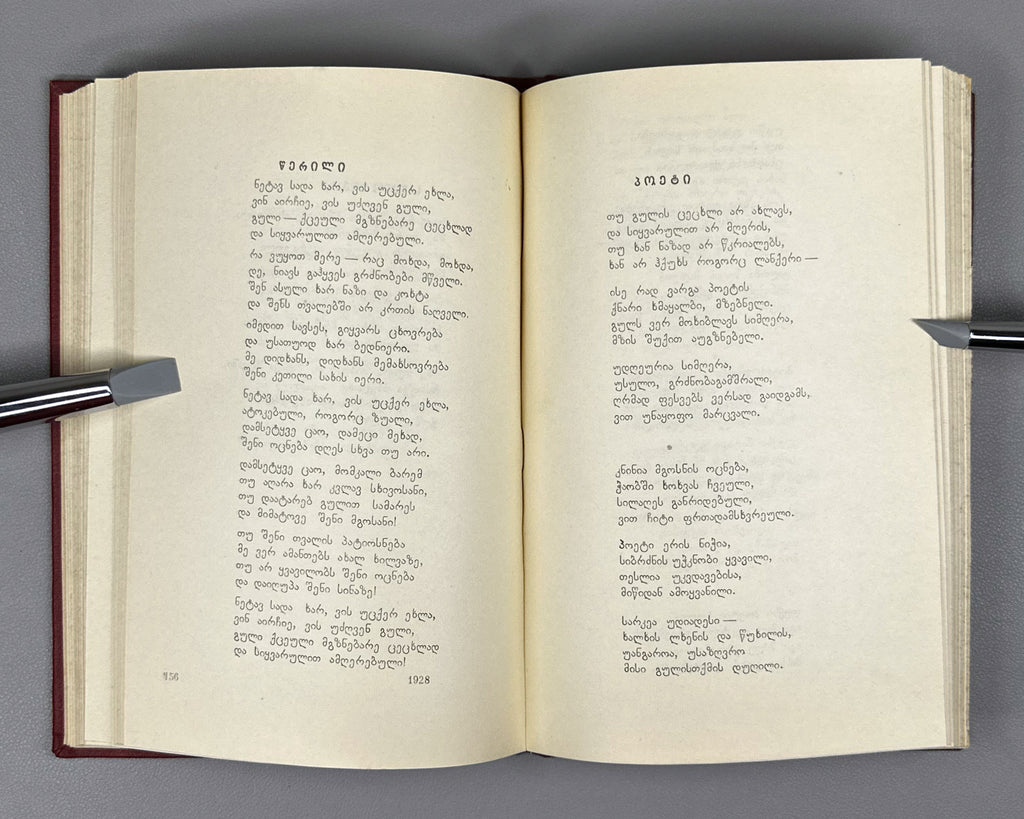 წერილი
ნეტავ სადა ხარ, ვის უცქერ ეხლა,
ვინ აირჩიე, ვის უძღვენ გული,
გული — ქცეული მგზნებარე ცეცხლად
და სიყვარულით ამღერებული.
რა ვუყოთ მერე — რაც მოხდა, მოხდა,
დე, ნიავს გაჰყვეს გრძნობები მწველი.
შენ ასული ხარ ნაზი და კოხტა
და შენს თვალებში არ კრთის ნაღველი.
იმედით სავსეს, გიყვარს ცხოვრება
და უსათუოდ ხარ ბედნიერი.
მე დიდხანს, დიდხანს მემახსოვრება
შენი კეთილი სახის იერი.
ნეტავ სადა ხარ, ვის უცქერ ეხლა,
ატოკებული, როგორც ზუალი,
დამსეტყვე ცაო, დამეცი მეხად,
შენი ოცნება დღეს სხვა თუ არი.
დამსეტყვე ცაო, მომკალი ბარემ
თუ აღარა ხარ კვლავ სხივოსანი,
თუ დაატარებ გულით სამარეს
და მიმატოვე შენი მგოსანი!
თუ შენი თვალის პატიოსნება
მე ვერ ამანთებს ახალ ხილვაზე,
თუ არ ყვავილობს შენი ოცნება
და დაიღუპა შენი სინაზე!
ნეტავ სადა ხარ, ვის უცქერ ეხლა,
ვინ აირჩიე, ვის უძღვენ გული,
გული ქცეული მგზნებარე ცეცხლად
და სიყვარულით ამღერებული!
1928
156
პოეტი
თუ გულის ცეცხლი არ ახლავს,
და სიყვარულით არ მღერის,
თუ ხან ნაზად არ წკრიალებს,
ხან არ ჰქუხს როგორც ლანქერი —
ისე რად ვარგა პოეტის
ქნარი ხმაყალბი, მზებნელი.
გულს ვერ მოხიბლავს სიმღერა,
მზის შუქით აუგზნებელი.
უდღეურია სიმღერა,
უსულო, გრძნობაგამშრალი,
ღრმად ფესვებს ვერსად გაიდგამს,
ვით უნაყოფო მარცვალი.
•
კნინია მგოსნის ოცნება,
ჭაობში ხოხვას ჩვეული,
სილაღეს განრიდებული,
ვით ჩიტი ფრთადამსხვრეული.
პოეტი ერის ნიჭია,
სიბრძნის უჭკნობი ყვავილი,
თესლია უკვდავებისა,
მიწიდან ამოყვანილი.
სარკეა უდიადესი —
ხალხის ლხენის და წუხილის,
უანგაროა, უსაზღვრო
მისი გულისთქმის დუღილი.